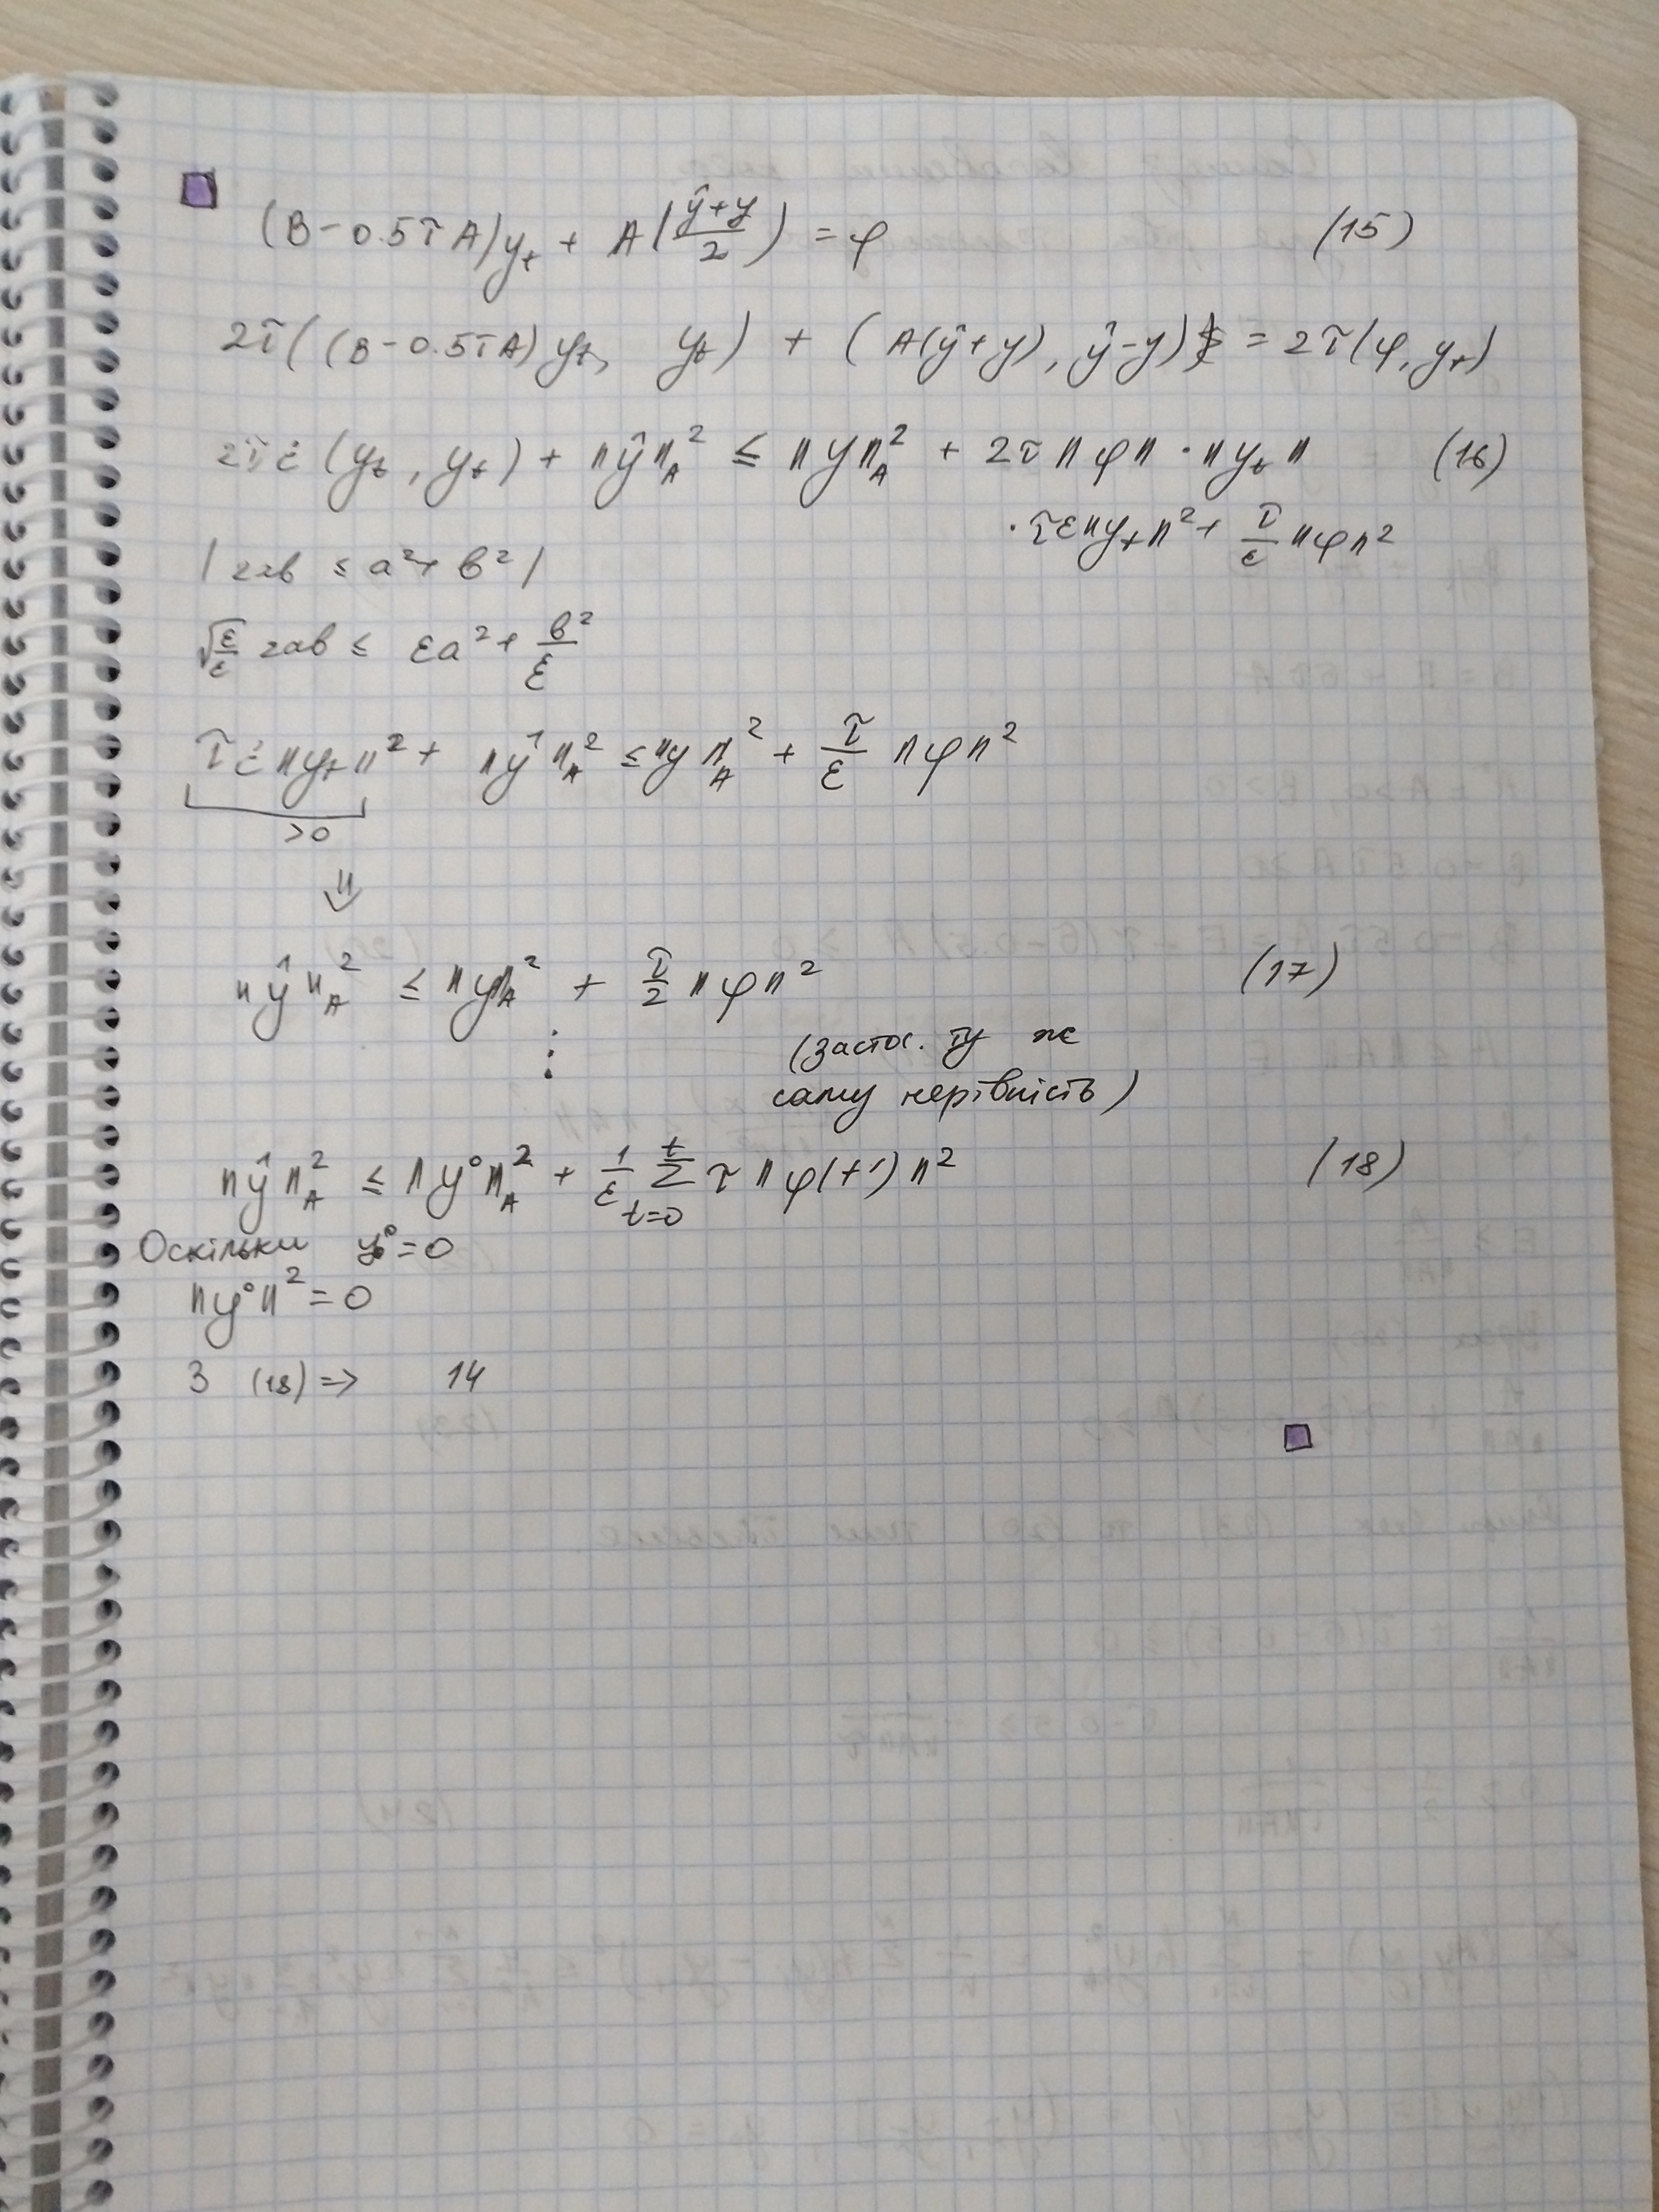 (B - 0.5τA)y_t + A((ŷ+y)/2) = φ (15)
2τ((B - 0.5τA)y_t, y_t) + (A(ŷ+y), ŷ-y) = 2τ(φ, y_t)
2τε(y_t, y_t) + ||ŷ||²_A ≤ ||y||²_A + 2τ||φ|| · ||y_t|| (16)
· τε||y_t||² + τ/ε ||φ||²
| 2ab ≤ a² + b² |
√(ε/ε) 2ab ≤ εa² + b²/ε
τε||y_t||² + ||ŷ||²_A ≤ ||y||²_A + τ/ε ||φ||²
>0
⇓
||ŷ||²_A ≤ ||y||²_A + τ/2 ||φ||² (17)
⋮ (застос. ту ж
саму нерівність)
||ŷ||²_A ≤ ||y⁰||²_A + 1/ε Σ_{t=0}^{t} τ ||φ(t')||² (18)
Оскільки y⁰ = 0
||y⁰||² = 0
З (18) => 14